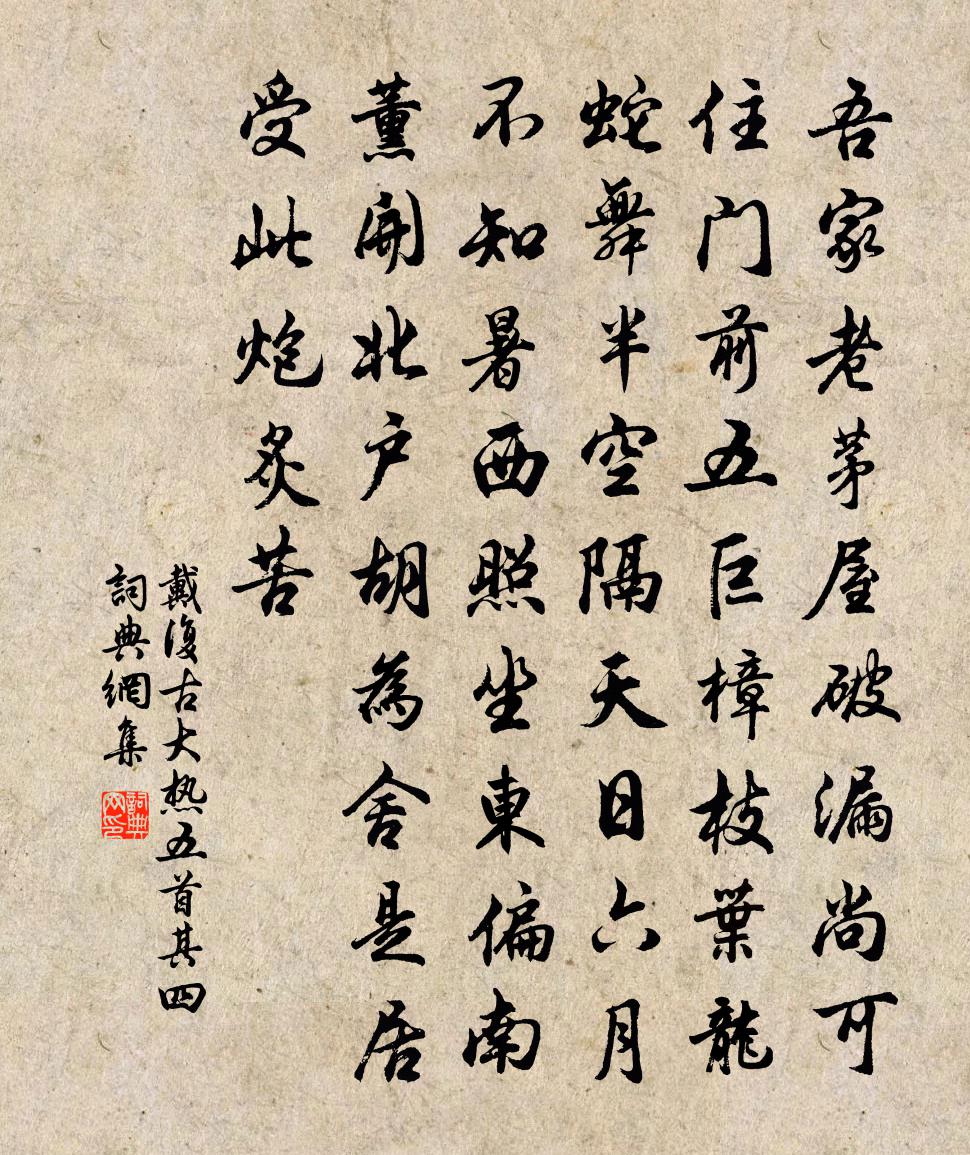 吾家老茅屋破漏尚可
住門前五巨樟枝葉龍
蛇舞半空隔天日六月
不知暑西照坐東偏南
薰開北户胡為舍是居
受此炮炙苦
戴復古大热五首其四
詞典網集
詞典網印